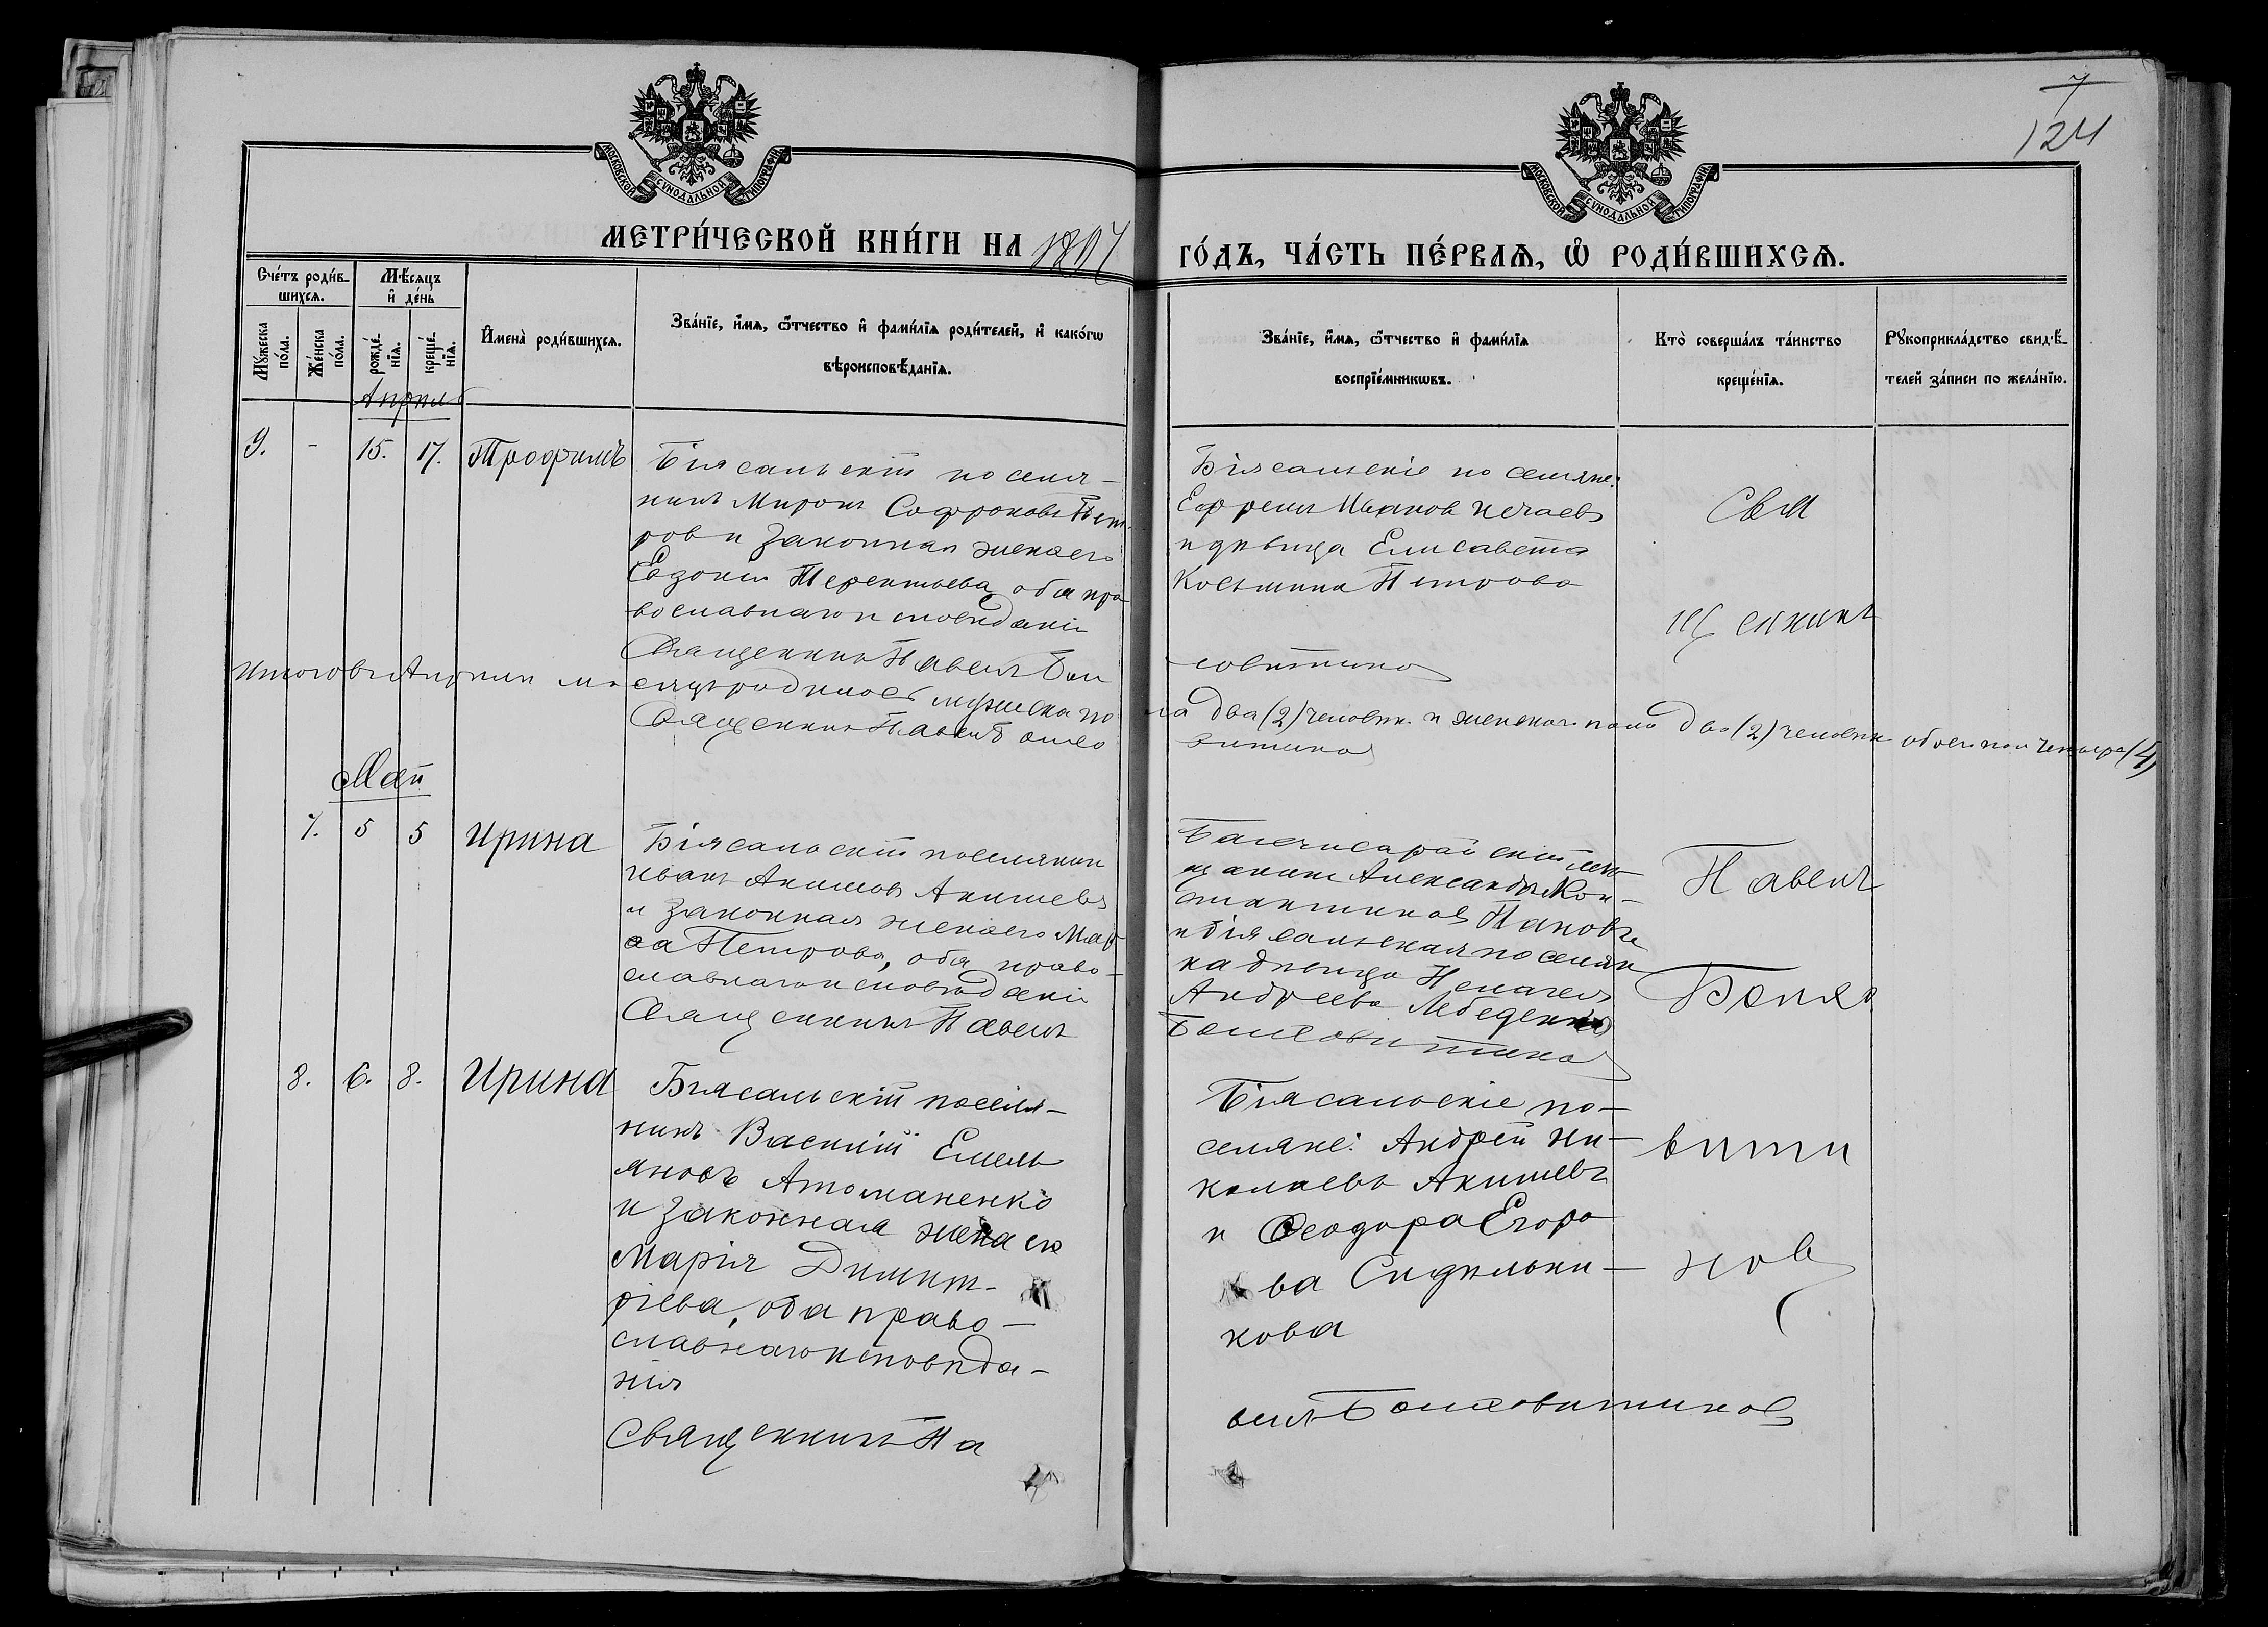 МОСКОВСКОЙ СѴНОДАЛЬНОЙ ТИПОГРАФІИ
МОСКОВСКОЙ СѴНОДАЛЬНОЙ ТИПОГРАФІИ
7
124
МЕТРИ́ЧЕСКОЙ КНИ́ГИ НА
ГО́ДЪ, ЧА́СТЬ ПЕ́РВАѦ, Ѽ РОДИ́ВШИХСѦ.
Сче́тъ роди́в-
шихсѧ.
Мѣ́сѧцъ
и҆ де́нь
Мꙋ́жеска
по́ла.
Же́нска
по́ла.
рожде́-
нїѧ.
креще́-
нїѧ.
И҆мена̀ роди́вшихсѧ.
Зва́нїе, и҆́мѧ, ѻ҆́тчество и҆ фами́лїѧ роди́телей, и҆ како́гѡ
вѣроисповѣ́данїѧ.
Зва́нїе, и҆́мѧ, ѻ҆́тчество и҆ фами́лїѧ
воспрїе́мникѡвъ.
Кто̀ соверша́лъ та́инство
креще́нїѧ.
Рꙋкоприкла́дство свидѣ́-
телей за́писи по жела́нїю.
Апрѣль
9. - 15. 17. Трофимъ
Біясальскій поселя-
нинъ Миронъ Софроновъ Пет-
ров и законная жена его
Евдокія Терентьева, оба пра-
вославнаго исповѣданія
Священникъ Павелъ
Біясальскіе поселяне:
Ефремъ Иванов Нечаевъ
и дѣвица Елисавета
Космина Петрова
Свя
щенникъ
Итого въ Апрѣлѣ мѣсяцѣ родилось мужеска пола два (2) человѣк. и женскаго пола два (2) человѣк обоего пола четыре (4)
Священникъ Павелъ
Май
7. 5 5 Ирина
Біясальскій поселянин
Иванъ Акимовъ Акишевъ
и законная жена его Мар-
ѳа Петрова, оба право-
славнаго исповѣданія
Священникъ Павелъ
Бахчисарайскій мѣ-
щанинъ Александръ Кон-
стантиновъ Пановъ
и біясальская поселян
ка дѣвица Пелагея
Андреева Лебеденко
Павелъ
8. 6. 8. Ирина
Біясальскій поселя-
нинъ Василій Емель
яновъ Атоманенко
и законная жена его
Марія Димит-
ріева, оба право-
славнаго исповѣда-
нія
Священникъ Па
Біясальскіе по-
селяне: Андрей Ни-
колаевъ Акишевъ
и Ѳеодора Егоро
ва Сидельни-
кова
витн
нов